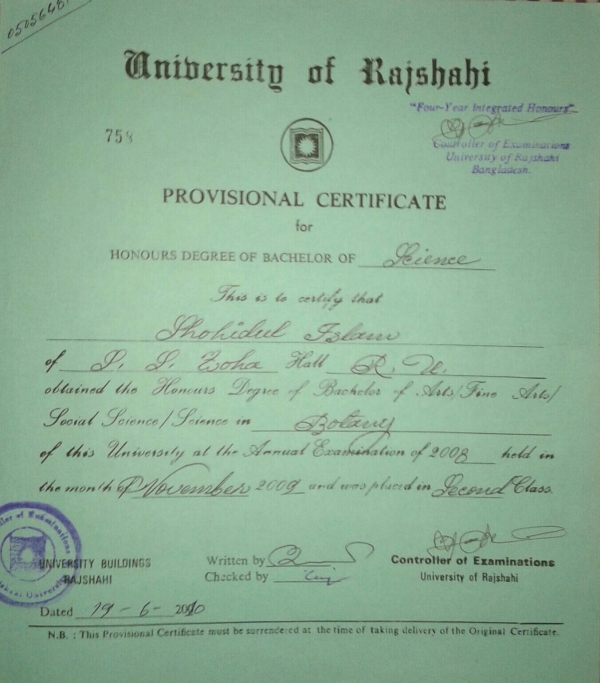 University of Rajshahi
"Four-Year Integrated Honours"
758
Controller of Examinations
University of Rajshahi
Bangladesh.
PROVISIONAL CERTIFICATE
for
HONOURS DEGREE OF BACHELOR OF Science
This is to certify that
Shohidul Islam
of S. S. Zoha Hall R. U.
obtained the Honours Degree of Bachelor of Arts/Fine Arts/
Social Science/Science in Botany
of this University at the Annual Examination of 2008 held in
the month of November 2009 and was placed in Second Class.
UNIVERSITY BUILDINGS
RAJSHAHI
Written by
Checked by
Controller of Examinations
University of Rajshahi
Dated 19-6-2010
N.B. : This Provisional Certificate must be surrendered at the time of taking delivery of the Original Certificate.